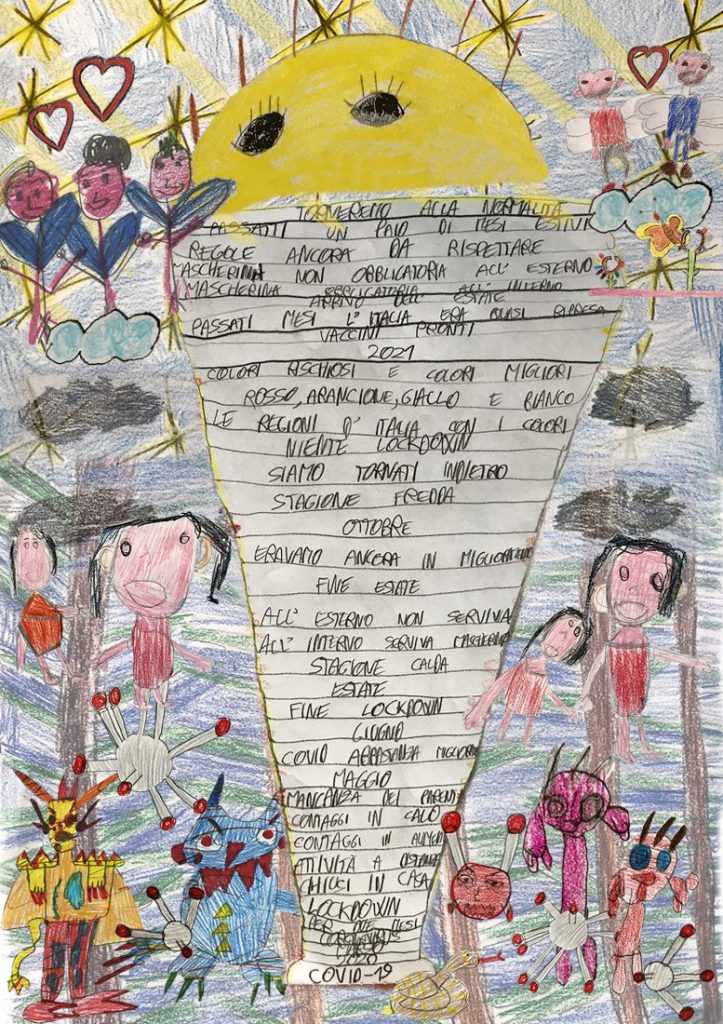 TORNEREMO ALLA NORMALITÀ
PASSATI UN PAIO DI MESI ESTIVI
REGOLE ANCORA DA RISPETTARE
MASCHERINA NON OBBLIGATORIA ALL' ESTERNO
MASCHERINA OBBLIGATORIA ALL' INTERNO
ARRIVO DELL' ESTATE
PASSATI MESI L' ITALIA ERA QUASI RIPRESA
VACCINI PRONTI
2021
COLORI RISCHIOSI E COLORI MIGLIORI
ROSSO, ARANCIONE, GIALLO E BIANCO
LE REGIONI D' ITALIA CON I COLORI
NIENTE LOCKDOWN
SIAMO TORNATI INDIETRO
STAGIONE FREDDA
OTTOBRE
ERAVAMO ANCORA IN MIGLIORAMENTO
FINE ESTATE
ALL' ESTERNO NON SERVIVA
ALL' INTERNO SERVIVA MASCHERINA
STAGIONE CALDA
ESTATE
FINE LOCKDOWN
GIUGNO
COVID ABBASTANZA MIGLIORE
MAGGIO
MANCANZA DEI PARENTI
CONTAGGI IN CALO
CONTAGGI IN AUMENTO
ATTIVITÀ A DISTANZA
CHIUSI IN CASA
LOCKDOWN
PER DUE MESI
CORONAVIRUS
2020
COVID-19